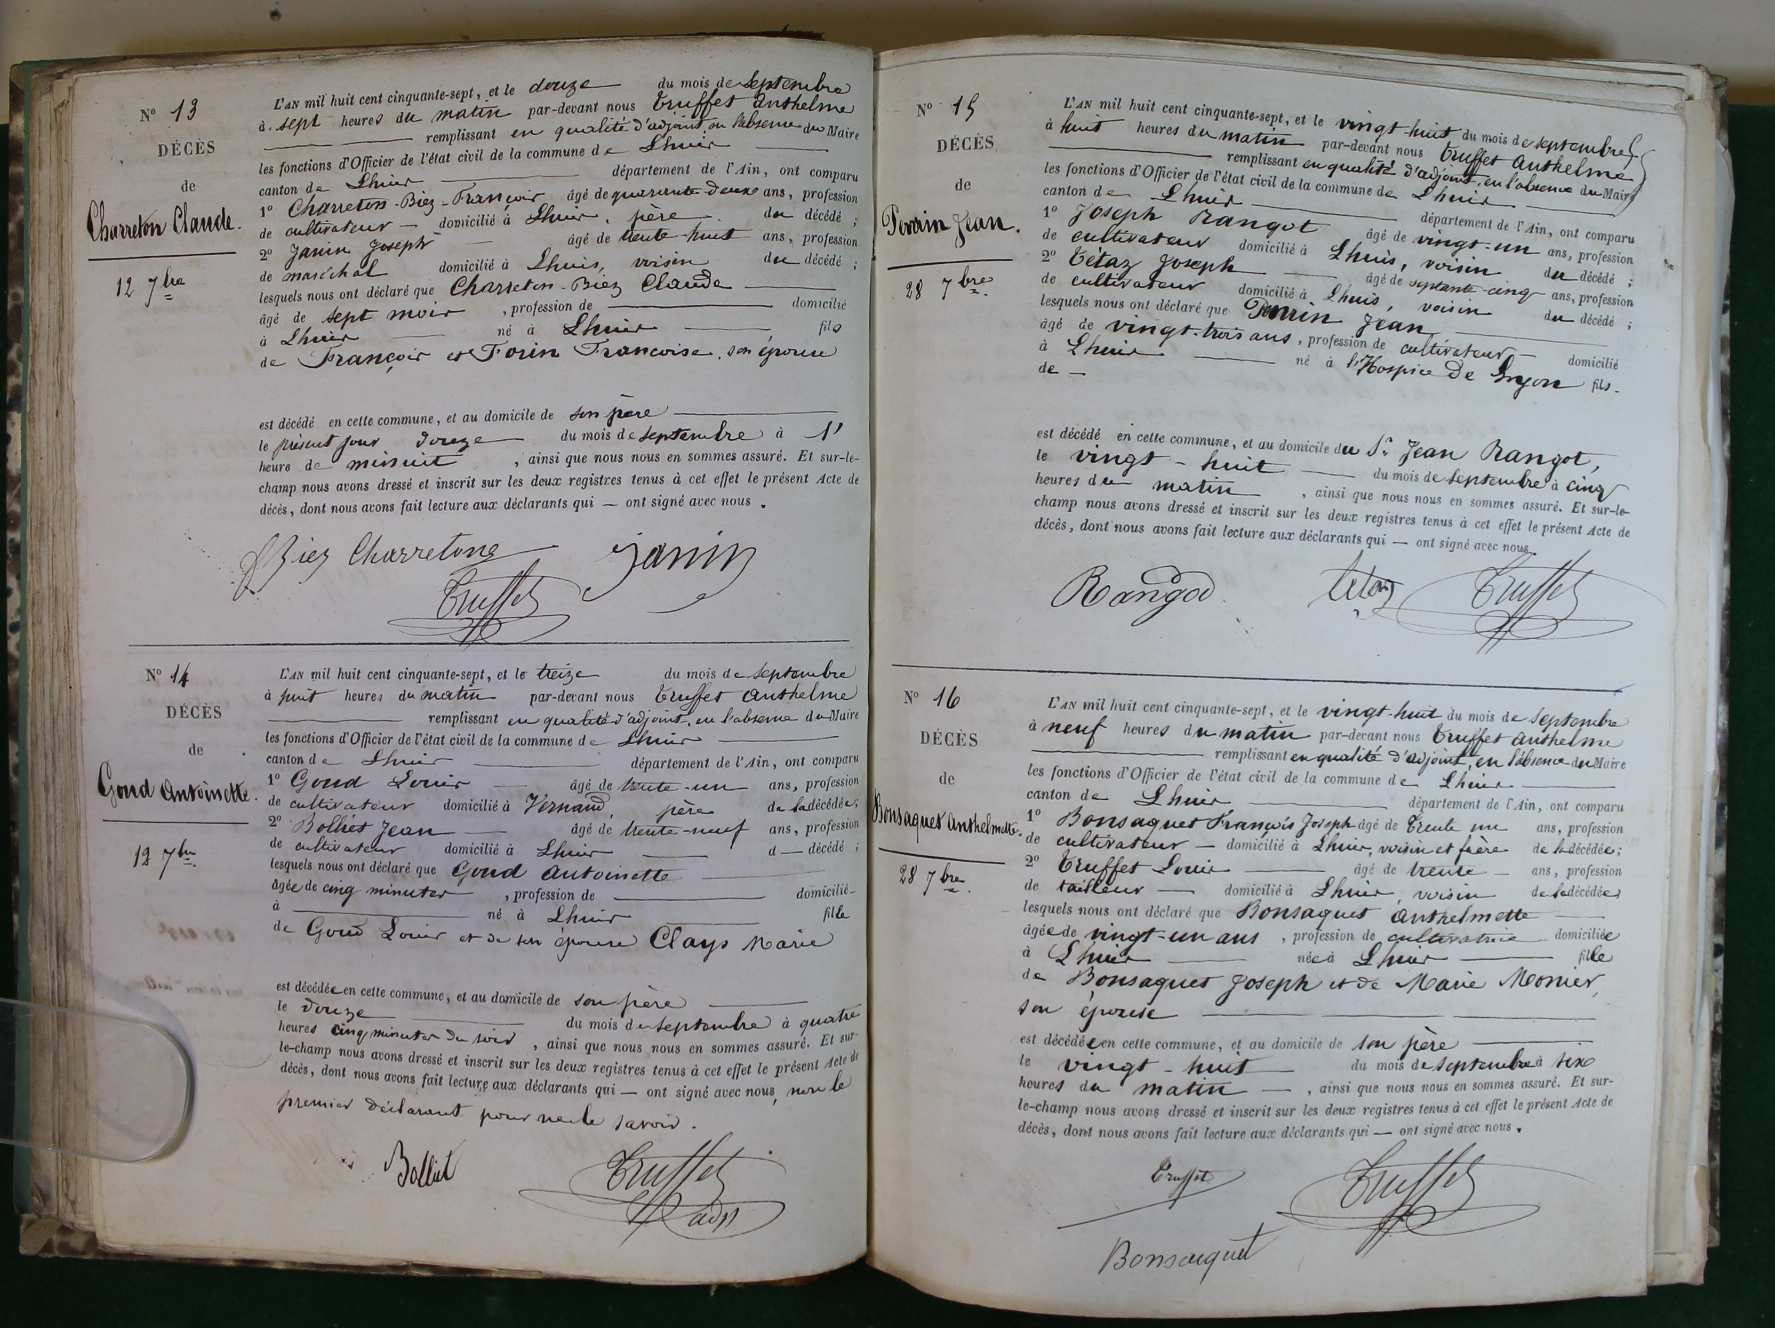 N° 13
DÉCÈS
de
Charreton Claude.
12 7bre
L'AN mil huit cent cinquante-sept, et le douze du mois de Septembre
à sept heures du matin par-devant nous Truffet Anthelme
remplissant en qualité d'adjoint, en l'absence du Maire
les fonctions d'Officier de l'état civil de la commune de Lhuis
canton de Lhuis département de l'Ain, ont comparu
1° Charreton-Biez-François âgé de quarante-deux ans, profession
de cultivateur domicilié à Lhuis, père du décédé ;
2° Janin Joseph âgé de trente-huit ans, profession
de maréchal domicilié à Lhuis, voisin du décédé ;
lesquels nous ont déclaré que Charreton-Biez Claude
âgé de sept mois , profession de domicilié
à Lhuis né à Lhuis fils
de François et Forin Françoise, son épouse
est décédé en cette commune, et au domicile de son père
le présent jour douze du mois de septembre à 1'
heure de minuit , ainsi que nous nous en sommes assuré. Et sur-le-
champ nous avons dressé et inscrit sur les deux registres tenus à cet effet le présent Acte de
décès, dont nous avons fait lecture aux déclarants qui — ont signé avec nous .
Biez Charretong Janin
Truffet
N° 14
DÉCÈS
de
Goud Antoinette.
12 7bre
L'AN mil huit cent cinquante-sept, et le treize du mois de Septembre
à huit heures du matin par-devant nous Truffet Anthelme
remplissant en qualité d'adjoint, en l'absence du Maire
les fonctions d'Officier de l'état civil de la commune de Lhuis
canton de Lhuis département de l'Ain, ont comparu
1° Goud Louis âgé de trente-un ans, profession
de cultivateur domicilié à Vernand, père de la décédée ;
2° Bolliet Jean âgé de trente-neuf ans, profession
de cultivateur domicilié à Lhuis d — décédé ;
lesquels nous ont déclaré que Goud Antoinette
âgée de cinq minutes , profession de domicilié
à né à Lhuis fille
de Goud Louis et de son épouse Clays Marie
est décédée en cette commune, et au domicile de son père
le douze du mois de septembre à quatre
heures cinq minutes du soir , ainsi que nous nous en sommes assuré. Et sur-
le-champ nous avons dressé et inscrit sur les deux registres tenus à cet effet le présent Acte de
décès, dont nous avons fait lecture aux déclarants qui — ont signé avec nous, non le
premier déclarant pour ne le savoir.
Bolliet Truffet
adjt
N° 15
DÉCÈS
de
Perrin Jean.
28 7bre
L'AN mil huit cent cinquante-sept, et le vingt-huit du mois de septembre
à huit heures du matin par-devant nous Truffet Anthelme
remplissant en qualité d'adjoint, en l'absence du Maire
les fonctions d'Officier de l'état civil de la commune de Lhuis
canton de Lhuis département de l'Ain, ont comparu
1° Joseph Rangot âgé de vingt-un ans, profession
de cultivateur domicilié à Lhuis, voisin du décédé ;
2° Tétaz Joseph âgé de septante-cinq ans, profession
de cultivateur domicilié à Lhuis, voisin du décédé ;
lesquels nous ont déclaré que Perrin Jean
âgé de vingt-trois ans , profession de cultivateur domicilié
à Lhuis né à l'Hospice de Lyon fils
de —
est décédé en cette commune, et au domicile du Sr Jean Rangot,
le vingt-huit du mois de septembre à cinq
heures du matin , ainsi que nous nous en sommes assuré. Et sur-le-
champ nous avons dressé et inscrit sur les deux registres tenus à cet effet le présent Acte de
décès, dont nous avons fait lecture aux déclarants qui — ont signé avec nous.
Rangod tetaz Truffet
N° 16
DÉCÈS
de
Bonsaquet Anthelmette.
28 7bre
L'AN mil huit cent cinquante-sept, et le vingt-huit du mois de Septembre
à neuf heures du matin par-devant nous Truffet Anthelme
remplissant en qualité d'adjoint, en l'absence du Maire
les fonctions d'Officier de l'état civil de la commune de Lhuis
canton de Lhuis département de l'Ain, ont comparu
1° Bonsaquet François Joseph âgé de trente un ans, profession
de cultivateur — domicilié à Lhuis, voisin et frère de la décédée ;
2° Truffet Louis âgé de trente — ans, profession
de tailleur — domicilié à Lhuis, voisin de la décédée
lesquels nous ont déclaré que Bonsaquet Anthelmette
âgée de vingt-un ans , profession de cultivatrice domiciliée
à Lhuis née à Lhuis fille
de Bonsaquet Joseph et de Marie Monier,
son épouse
est décédée en cette commune, et au domicile de son père
le vingt-huit du mois de septembre à six
heures du matin — , ainsi que nous nous en sommes assuré. Et sur-
le-champ nous avons dressé et inscrit sur les deux registres tenus à cet effet le présent Acte de
décès, dont nous avons fait lecture aux déclarants qui — ont signé avec nous .
Truffet Truffet
Bonsaquet